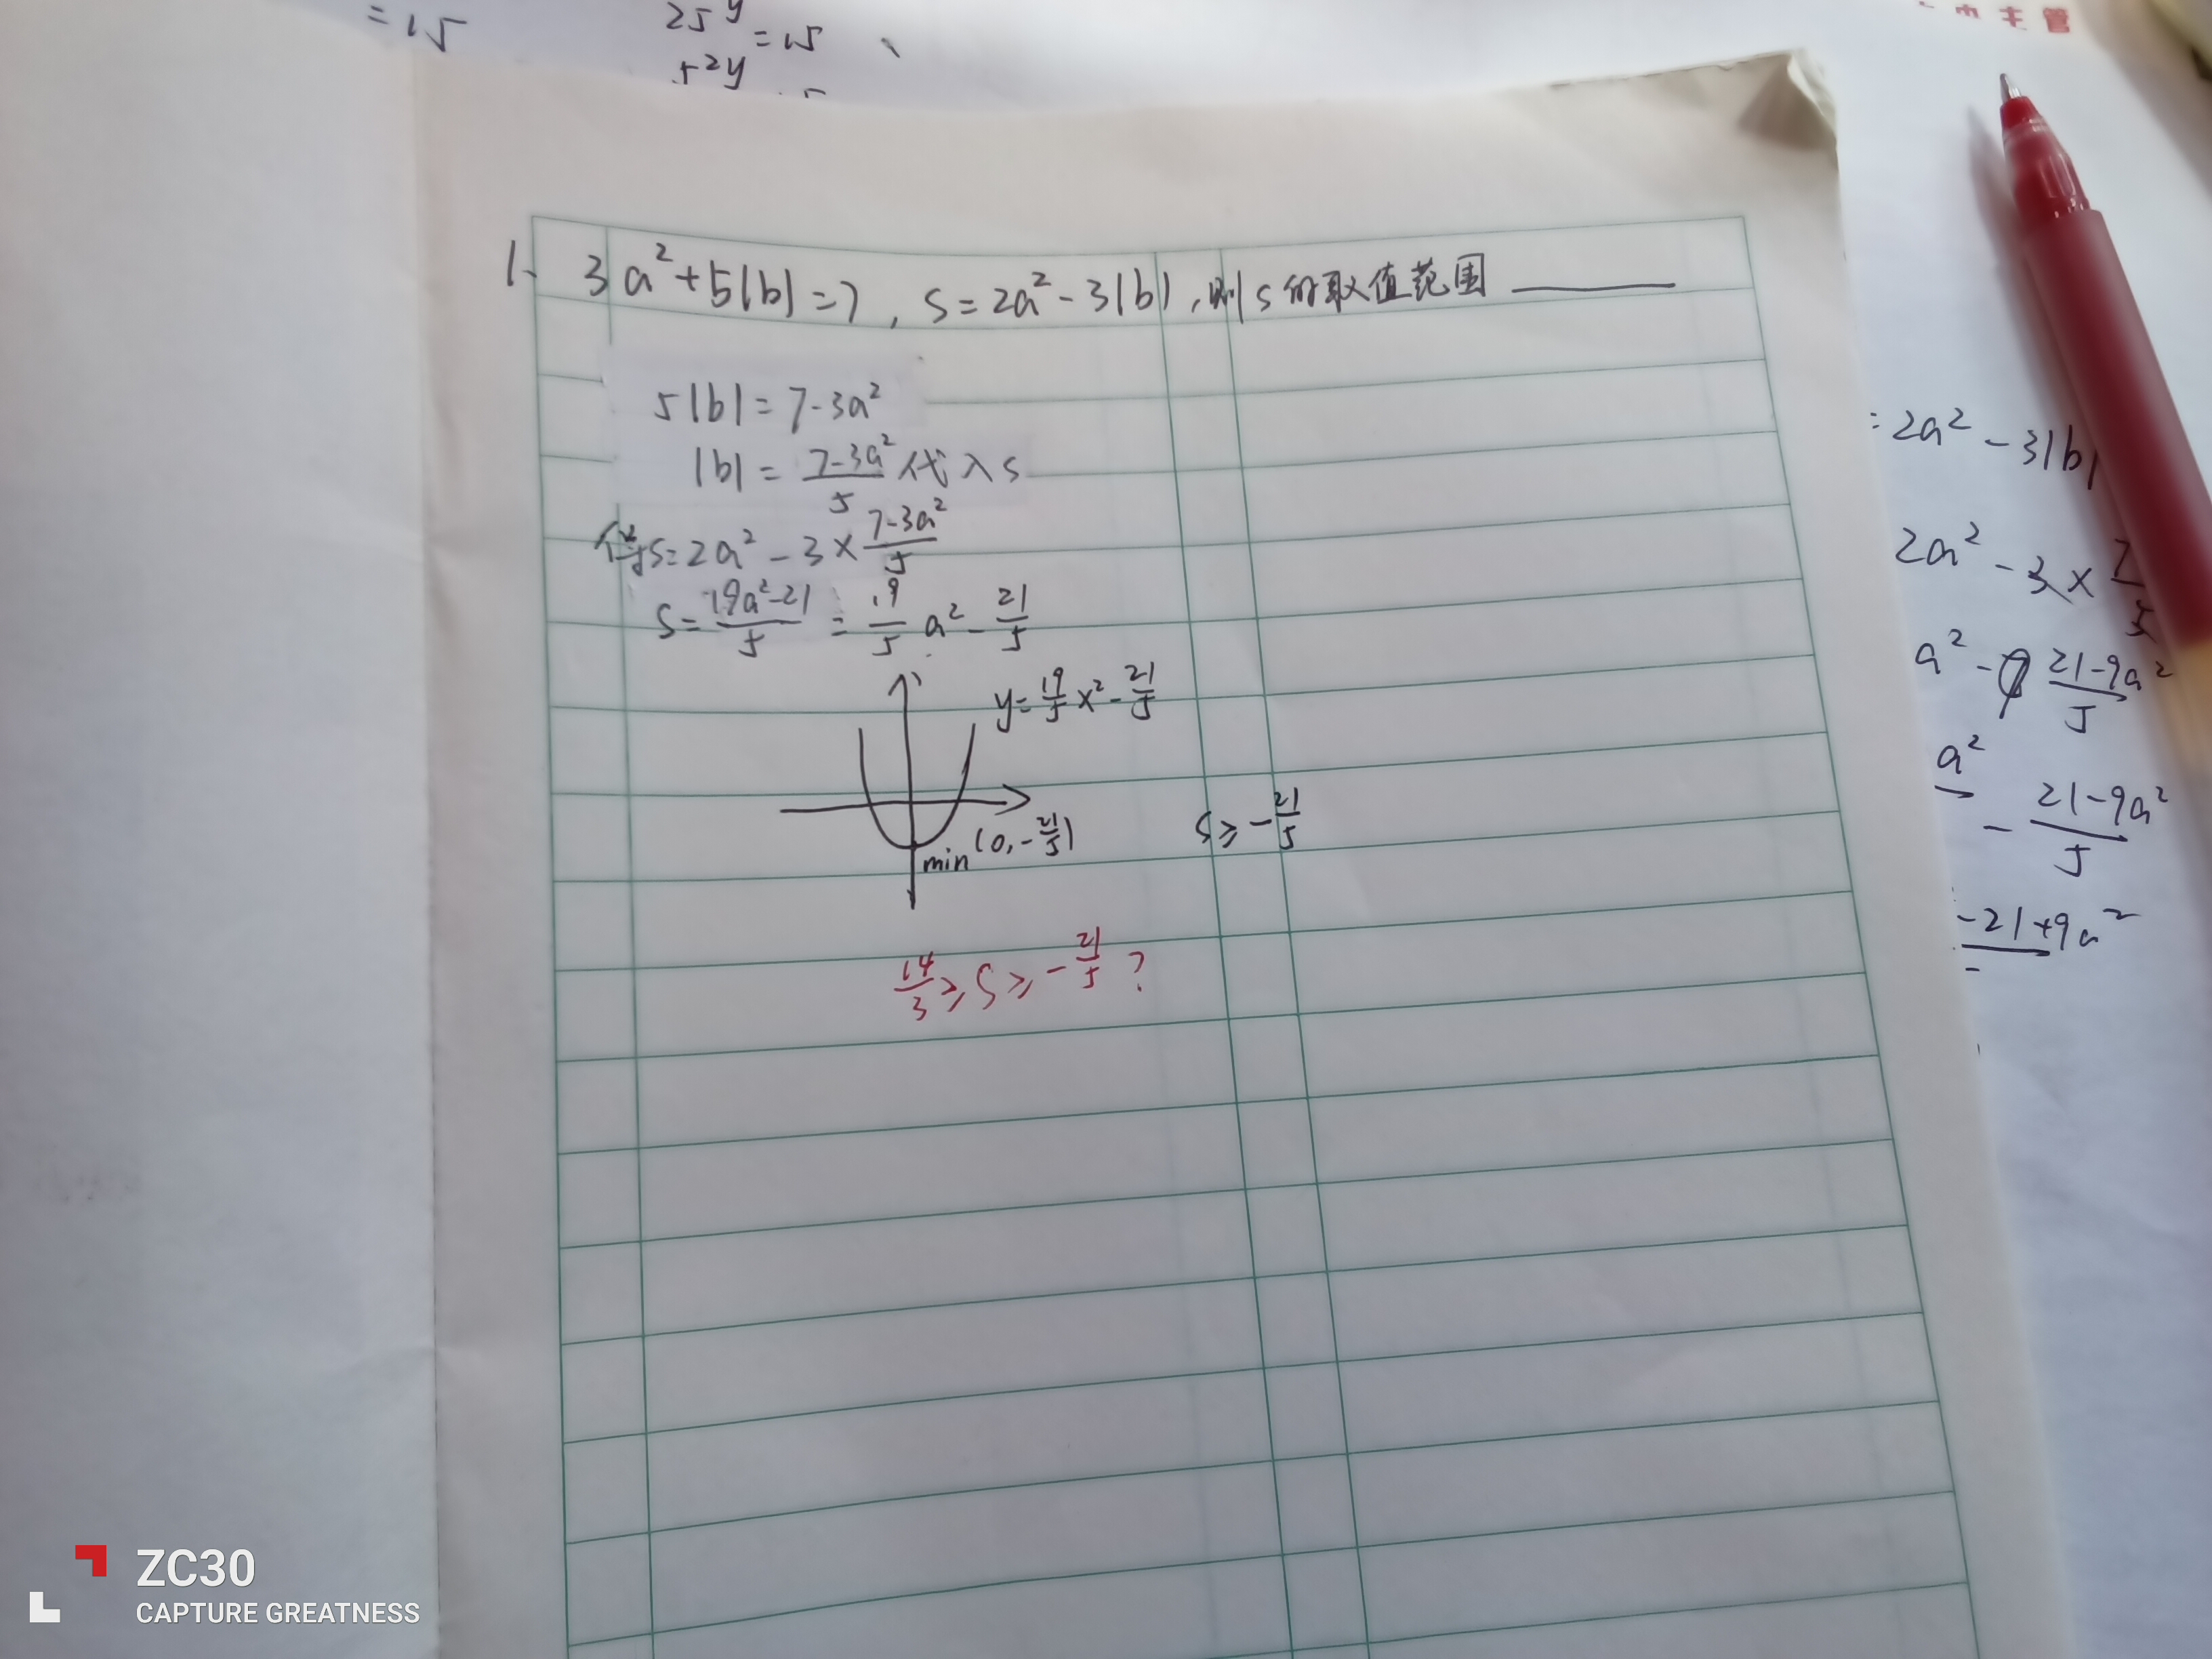 = 15
25^y = 15
5^2y
主管
1. 3a²+5|b|=7, S=2a²-3|b|,则S的取值范围______
5|b|=7-3a²
|b|=\frac{7-3a²}{5}代入S
得S=2a²-3×\frac{7-3a²}{5}
S=\frac{19a²-21}{5}=\frac{19}{5}a²-\frac{21}{5}
y=\frac{19}{5}x²-\frac{21}{5}
min (0,-\frac{21}{5})
S≥-\frac{21}{5}
\frac{14}{3}≥S≥-\frac{21}{5}?
=2a²-3|b|
2a²-3×\frac{7}{5}
a²-\frac{21-9a²}{5}
a²-\frac{21-9a²}{5}
-21+9a²
ZC30
CAPTURE GREATNESS